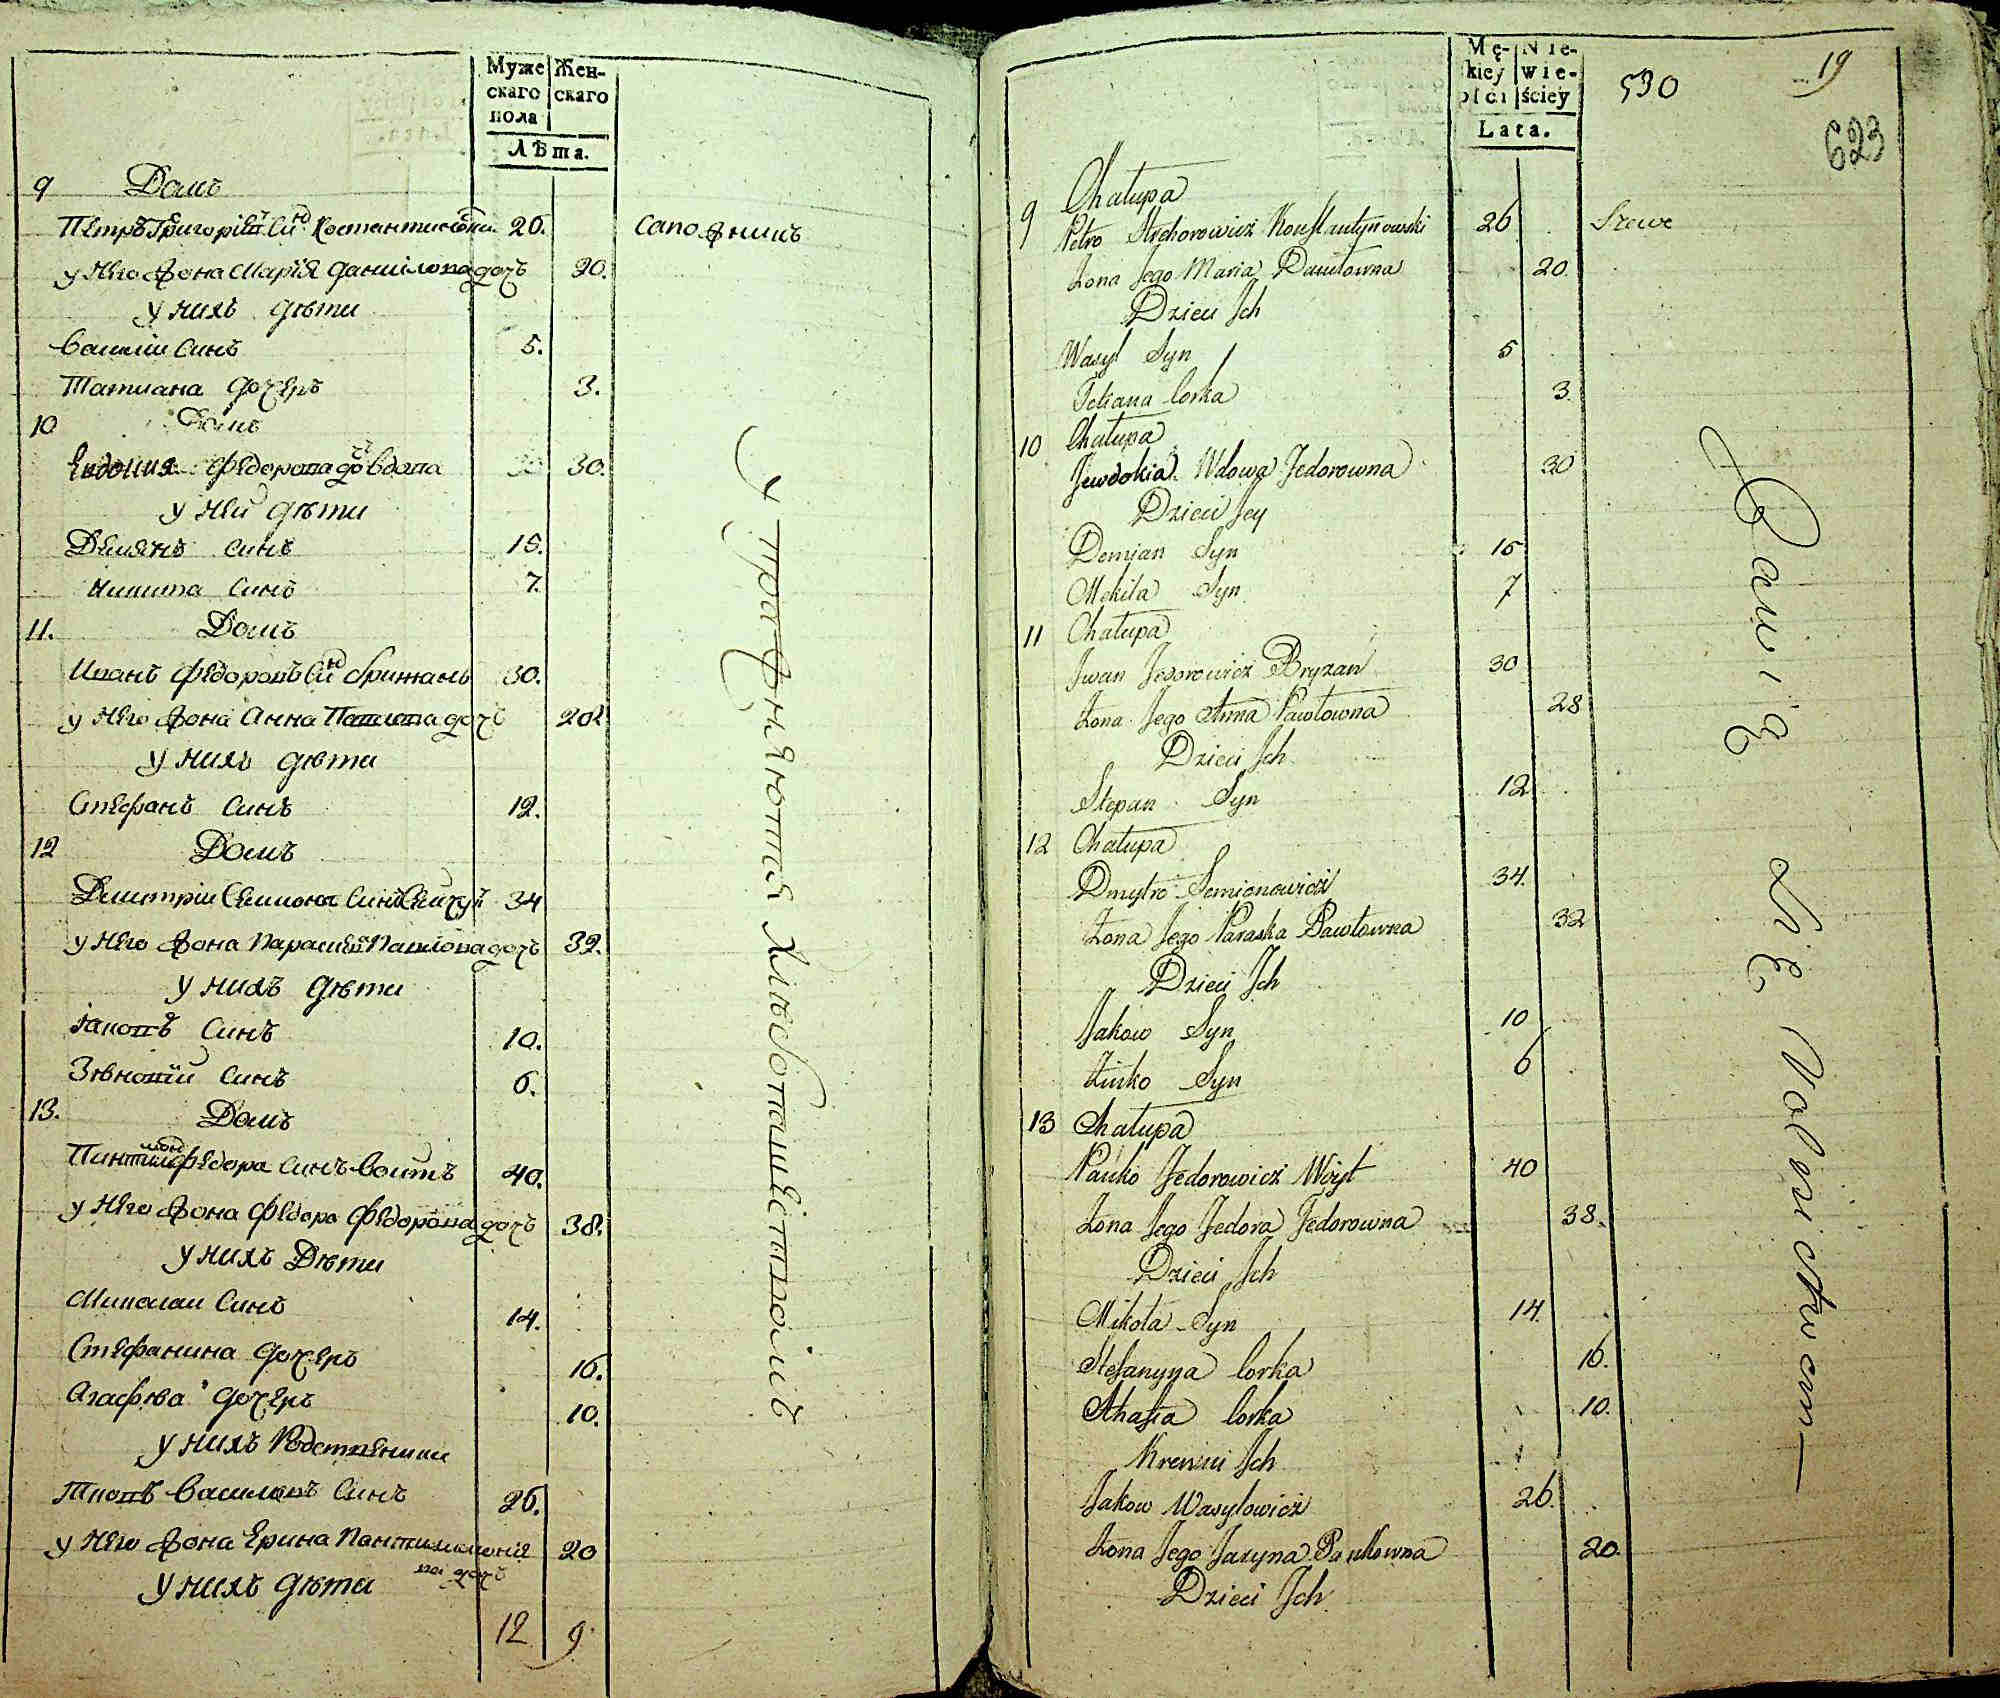 Муже Жен-
скаго скаго
пола
Лѣта.
9 Домъ
Петръ Григоріевъ Синъ Костантиновски 26. сапожникъ
у него жона Марія Данилова дочъ 20.
у нихъ дѣти
Василіи синъ 5.
Татиана дочеръ 3.
10 Домъ
Евдокия Федорова до вдова 30.
у неи дѣти
Демянъ синъ 15.
Никита синъ 7.
11. Домъ
Иванъ Федоровъ Синъ Брижанъ 30.
у него жона Анна Павлова дочъ 28
у нихъ дѣти
Стефанъ синъ 12.
12 Домъ
Дмитріи Семионовъ синъ 34
у него жона Параскеѵ Павлова дочъ 32.
у нихъ дѣти
Іаковъ Синъ 10.
Зѣновіи синъ 6.
13. Домъ
Пантилимон Федора синъ воитъ 40.
у него жона Федора Федорова дочъ 38.
у нихъ Дѣти
Миколаи Синъ 14.
Стефанина дочеръ 16.
Агафѣва дочеръ 10.
у нихъ Родственики
Яковъ Василювъ Синъ 26.
у него жона Ерина Пантилимонія
ва дочъ 20
у нихъ дѣти
12 9
упражняются хлѣбопашествомъ
Mę- Nie-
kiey wie-
płci ściey
Lata.
530
19
623
9 Chałupa
Petro Hrehorowicz Konstantynowski 26 Szewc
Żona Jego Maria Daniłowna 20
Dzieci Ich
Wasyl Syn 5
Teliana Corka 3.
10 Chałupa
Jewdokia Wdowa Fedorowna 30
Dzieci Jey
Demjan Syn 15
Mekita Syn 7
11 Chałupa
Iwan Fedorowicz Bryzan 30
Żona Jego Anna Pawłowna 28
Dzieci Ich
Stepan Syn 12
12 Chałupa
Dmytro Semionowicz 34.
Żona Jego Paraska Pawłowna 32
Dzieci Ich
Jakow Syn 10
Zinko Syn 6
13 Chałupa
Pańko Fedorowicz Woyt 40
Żona Jego Fedora Fedorowna 38.
Dzieci Ich
Mikoła Syn 14.
Stefanyna Corka 16.
Ahafia Corka 10.
Krewni Ich
Jakow Wasylowicz 26.
Żona Jego Jaryna Pańkowna 20.
Dzieci Ich
Bawią się Rolnictwem